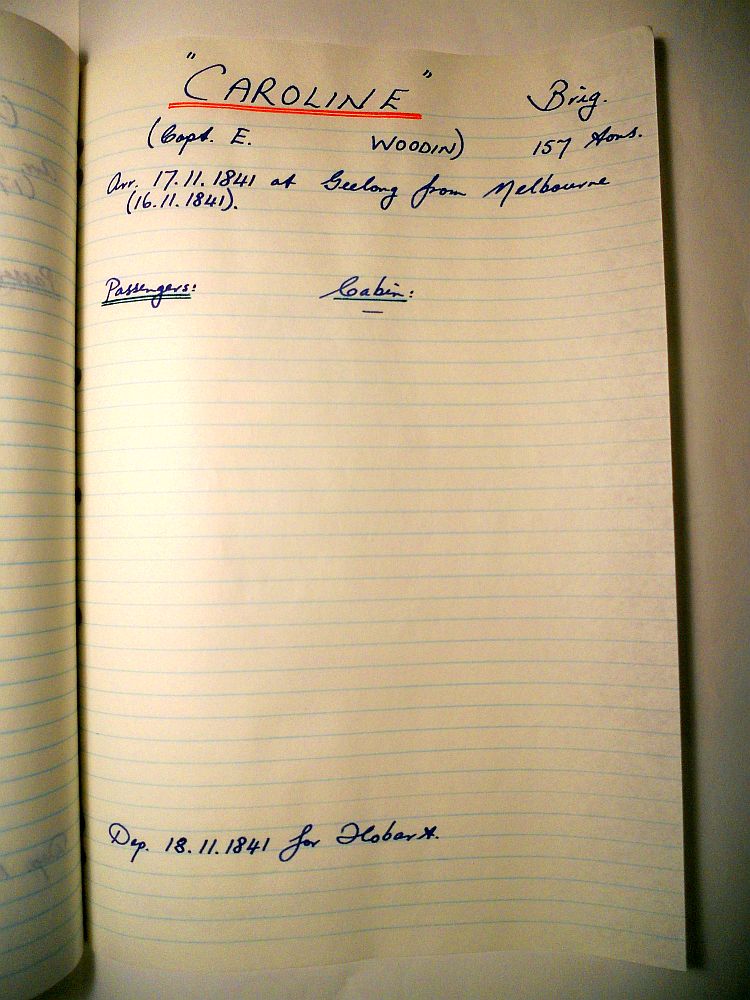 "CAROLINE" Brig.
(Capt. E. WOODIN) 157 tons.
Arr. 17.11.1841 at Geelong from Melbourne
(16.11.1841).
Passengers: Cabin:
—
Dep. 18.11.1841 for Hobart.